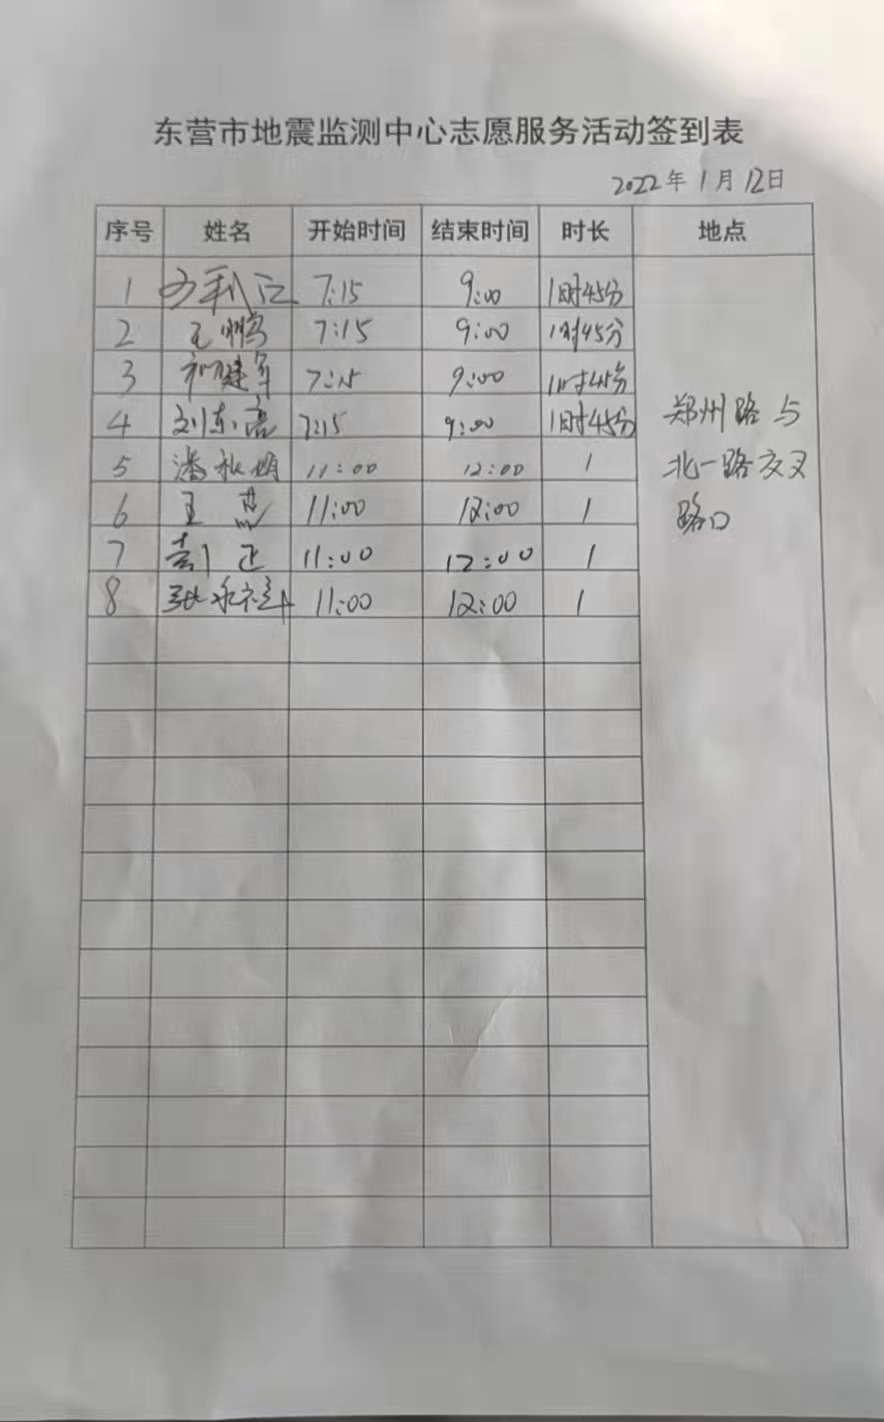 东营市地震监测中心志愿服务活动签到表
2022年1月12日
序号 姓名 开始时间 结束时间 时长 地点
1 7:15 9:00 1时45分
2 王鹏 7:15 9:00 1时45分
3 建军 7:15 9:00 1时45分
4 刘东亮 7:15 9:00 1时45分
5 潘秋娟 11:00 12:00 1
6 王燕 11:00 12:00 1
7 正 11:00 12:00 1
8 张永祥 11:00 12:00 1
郑州路与
北一路交叉
路口